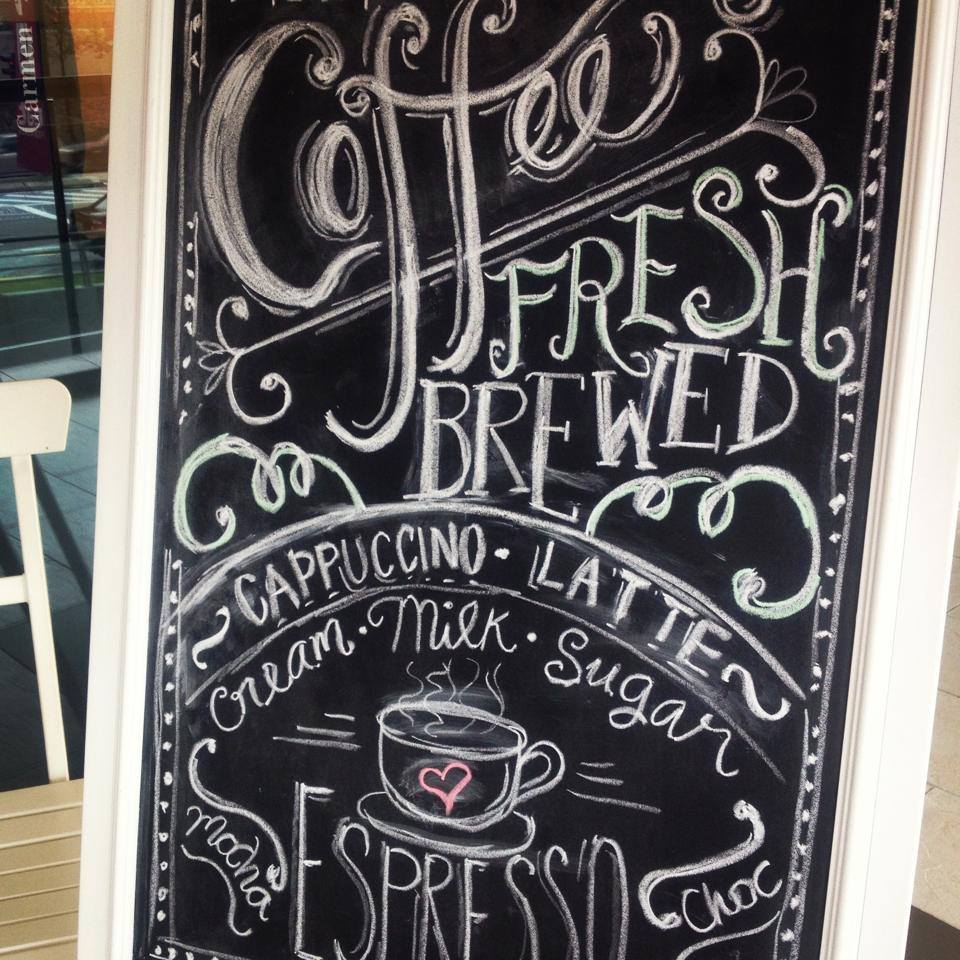 Carmen
Coffee
FRESH
BREWED
CAPPUCCINO · LATTE
Cream · Milk · Sugar
ESPRESSO
Mocha
Choc